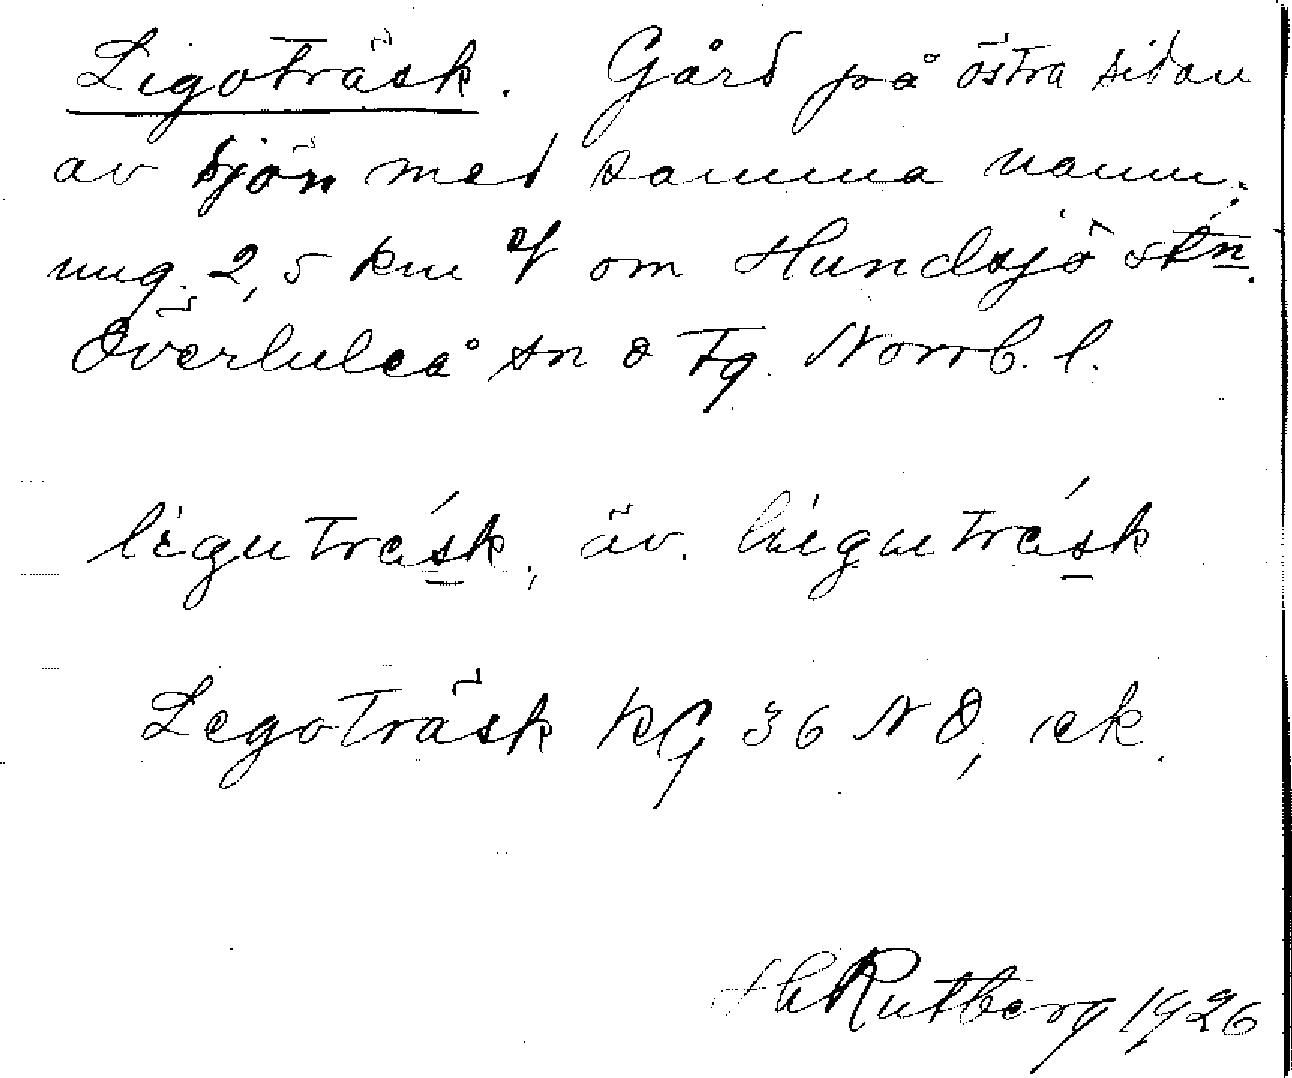 Ligoträsk. Gård på östra sidan
av sjön med samma namn;
ung. 2,5 km V om Hundsjö stn.
Överluleå sn o tg. Norrb. l.
liguträsk, äv. liiguträsk
Legoträsk KG 36 NO, ek.
H Rutberg 1926